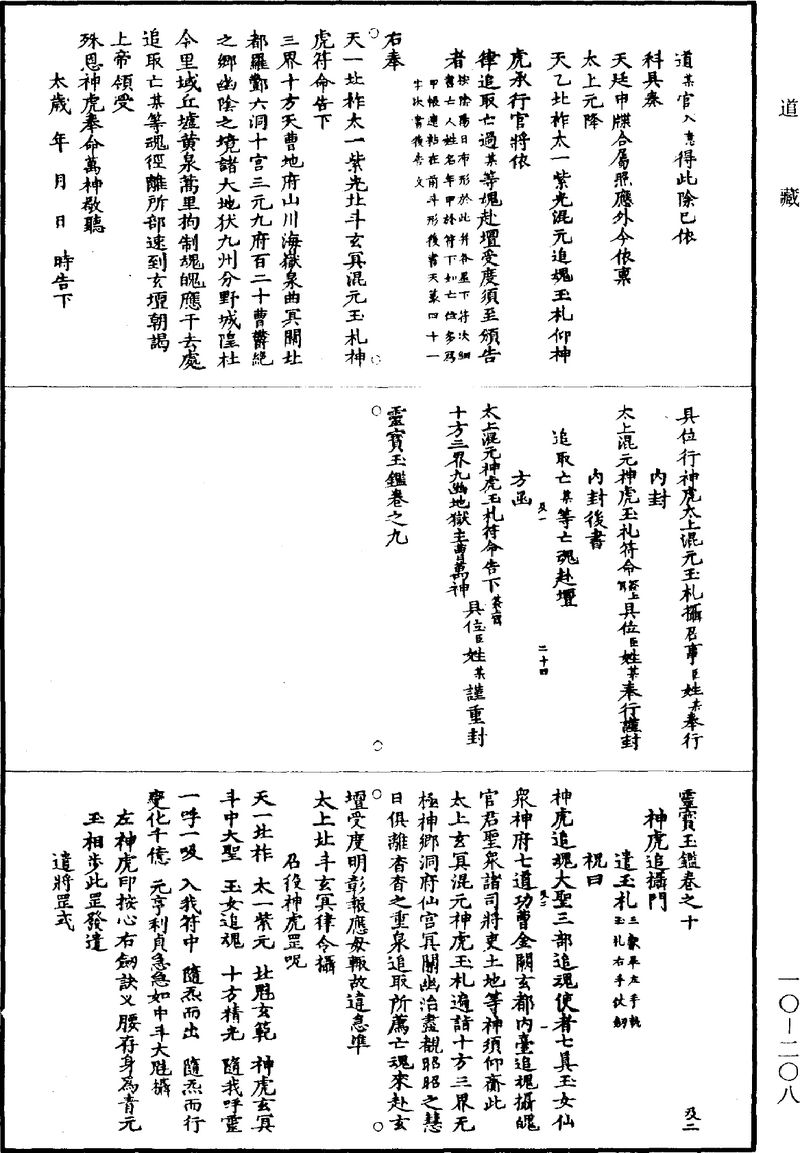 道藏
道某官入意得此除已依
科具奏
天廷申牒合屬照應外今依稟
太上元降
天乙北柞太一紫光混元追魂玉札仰神
虎承行官將依
律追取亡過某等魂赴壇受度須至頒告
者
右奉
天一北柞太一紫光北斗玄冥混元玉札神
虎符命告下
三界十方天曹地府山川海嶽泉曲冥關北
都羅酆六洞十宮三元九府百二十曹鬱絕
之鄉幽陰之境諸大地伏九州分野城隍社
令里域丘墟黃泉蒿里拘制魂魄應干去處
追取亡某等魂徑離所部速到玄壇朝謁
上帝領受
殊恩神虎奉命萬神敬聽
太歲 年 月 日 時告下
具位行神虎太上混元玉札攝召事臣姓某奉行
內封
太上混元神虎玉札符命告下具位臣姓某奉行謹封
內封後書
追取亡某等亡魂赴壇
及一 二十四
方函
太上混元神虎玉札符命告下某宮
十方三界九幽地獄主曹萬神 具位臣姓某謹重封
靈寶玉鑑卷之九
靈寶玉鑑卷之十 及二
神虎追攝門
遣玉札三獻畢左手執玉札右手仗劍
祝曰
神虎追魂大聖三部追魂使者七真玉女仙
眾神府七道功曹金闕玄都內臺追魂攝魄
官君聖眾諸司將吏土地等神須仰齎此
太上玄冥混元神虎玉札遍詣十方三界無
極神鄉洞府仙宮冥關幽治盡觀昭昭之慧
日俱離杳杳之重泉追取所薦亡魂來赴玄
壇受度明彰報應毋輒故違急準
太上北斗玄冥律令攝
召役神虎罡呪
天一北柞 太一紫元 北魁玄範 神虎玄冥
斗中大聖 玉女追魂 十方精光 隨我呼靈
一呼一吸 入我符中 隨炁而出 隨炁而行
變化千億 元亨利貞急急如中斗大魁攝
左神虎印按心右劍訣叉腰存身為青元
玉相步此罡發遣
遣將罡式
一〇—二〇八